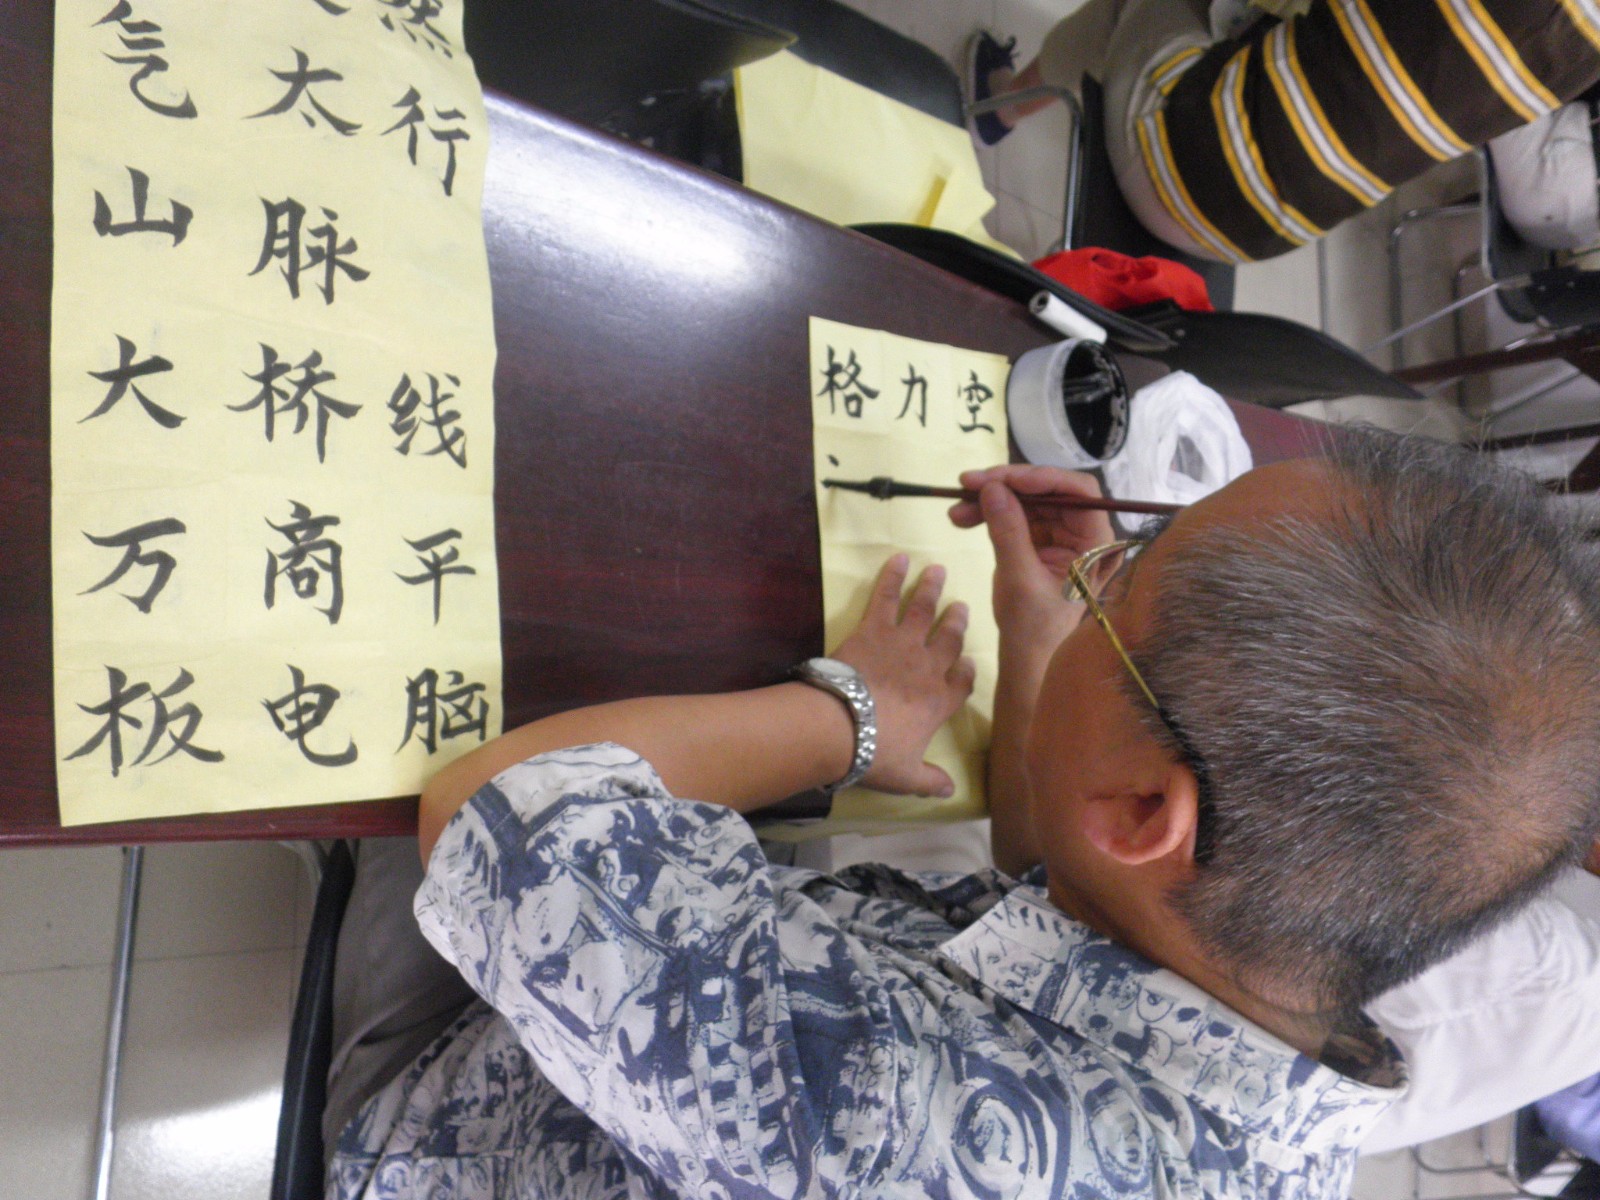 然
气太行
山脉
大桥线
万商平
板电脑
格力空